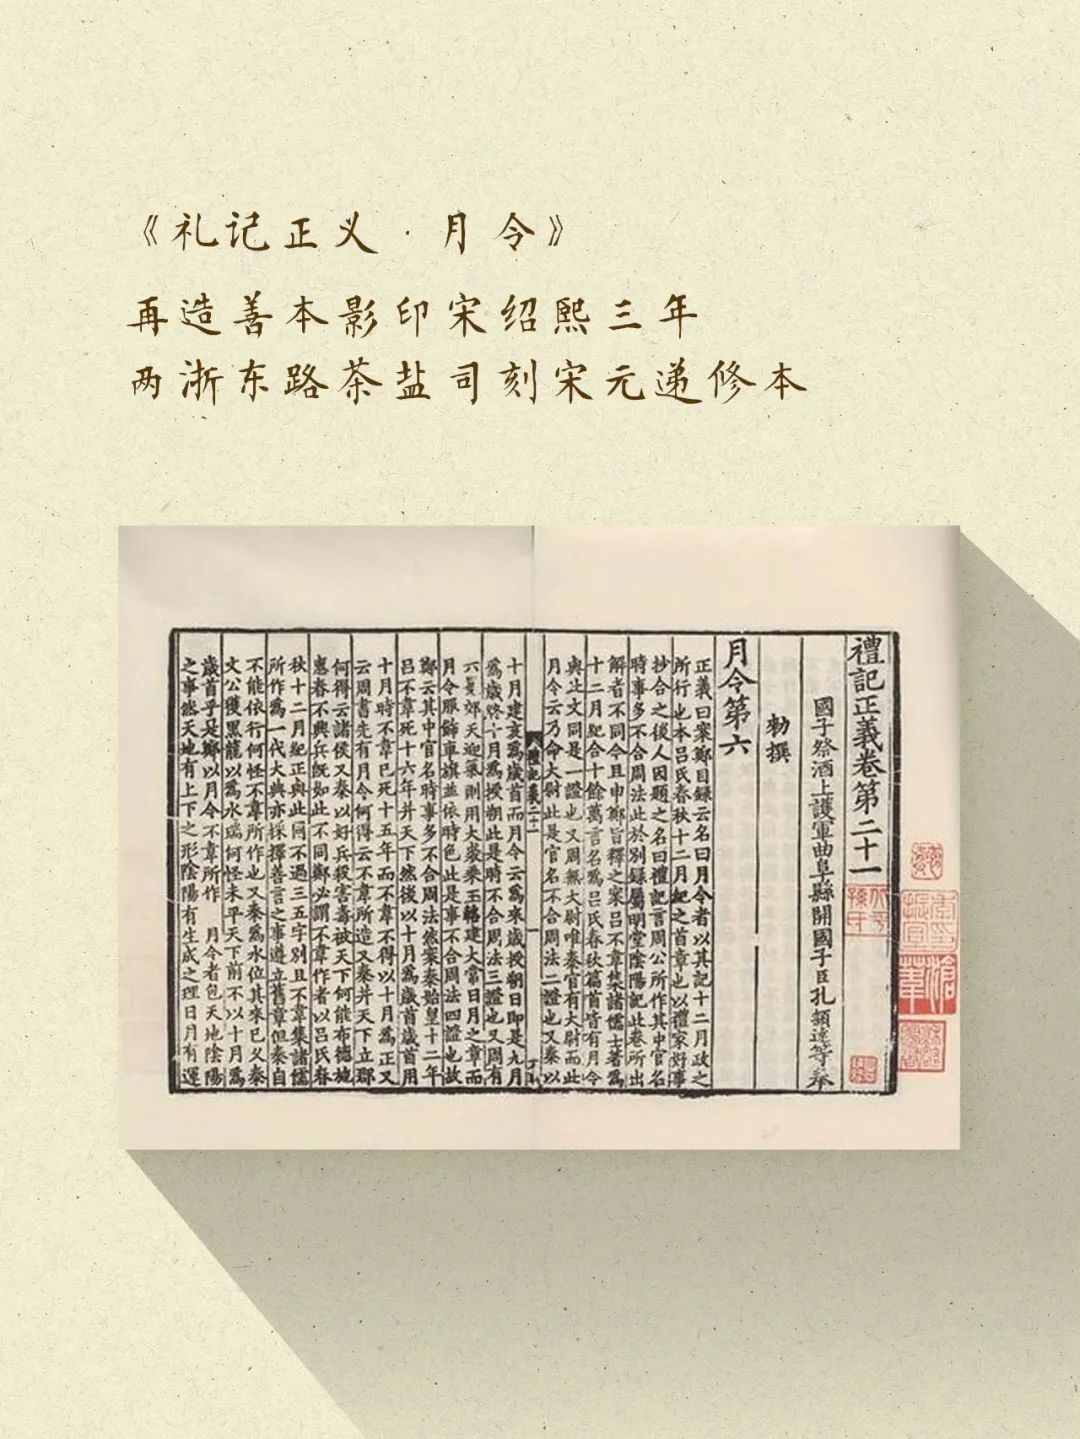 《礼记正义·月令》
再造善本影印宋绍熙三年
两浙东路茶盐司刻宋元递修本
禮記正義卷第二十一
國子祭酒上護軍曲阜縣開國子臣孔穎達等奉
勑撰
月令第六
正義曰案鄭目録云名曰月令者以其記十二月政之
所行也本吕氏春秋十二月紀之首章也以禮家好事
抄合之後人因題之名曰禮記言周公所作其中官名
時事多不合周法此於别録屬明堂陰陽記此卷所出
解者不同今且申鄭旨釋之案吕不韋集諸儒士著爲
十二月紀合十餘萬言名爲吕氏春秋篇首皆有月令
與此文同是一證也又周無大尉唯秦官有大尉而此
月令云乃命大尉此是官名不合周法二證也又秦以
禮記義二十一
一
十月建亥爲歲首而月令云爲來歲授朔日即是九月
爲歲終十月爲授朔此是時不合周法三證也又周有
六冕郊天迎氣則用大裘乗玉輅建大常日月之章而
月令服飾車旗並依時色此是事不合周法四證也故
鄭云其中官名時事多不合周法然案秦始皇十二年
吕不韋死十六年并天下然後以十月爲歲首歲首用
十月時不韋已死十五年而不韋不得以十月爲正又
云周書先有月令何得云不韋所造又秦并天下立郡
何得云諸侯又秦以好兵殺害毒被天下何能布德施
惠春不興兵既如此不同鄭必謂不韋作者以吕氏春
秋十二月紀正與此同不過三五字别且不韋集諸儒
所作爲一代大典亦採擇善言之事遵立舊章但秦自
不能依行何怪不韋所作也又秦爲水位其來已乆秦
文公獲黑龍以爲水瑞何怪未平天下前不以十月爲
歲首乎是鄭以月令不韋所作 月令者包天地陰陽
之事然天地有上下之形陰陽有生成之理日月有運